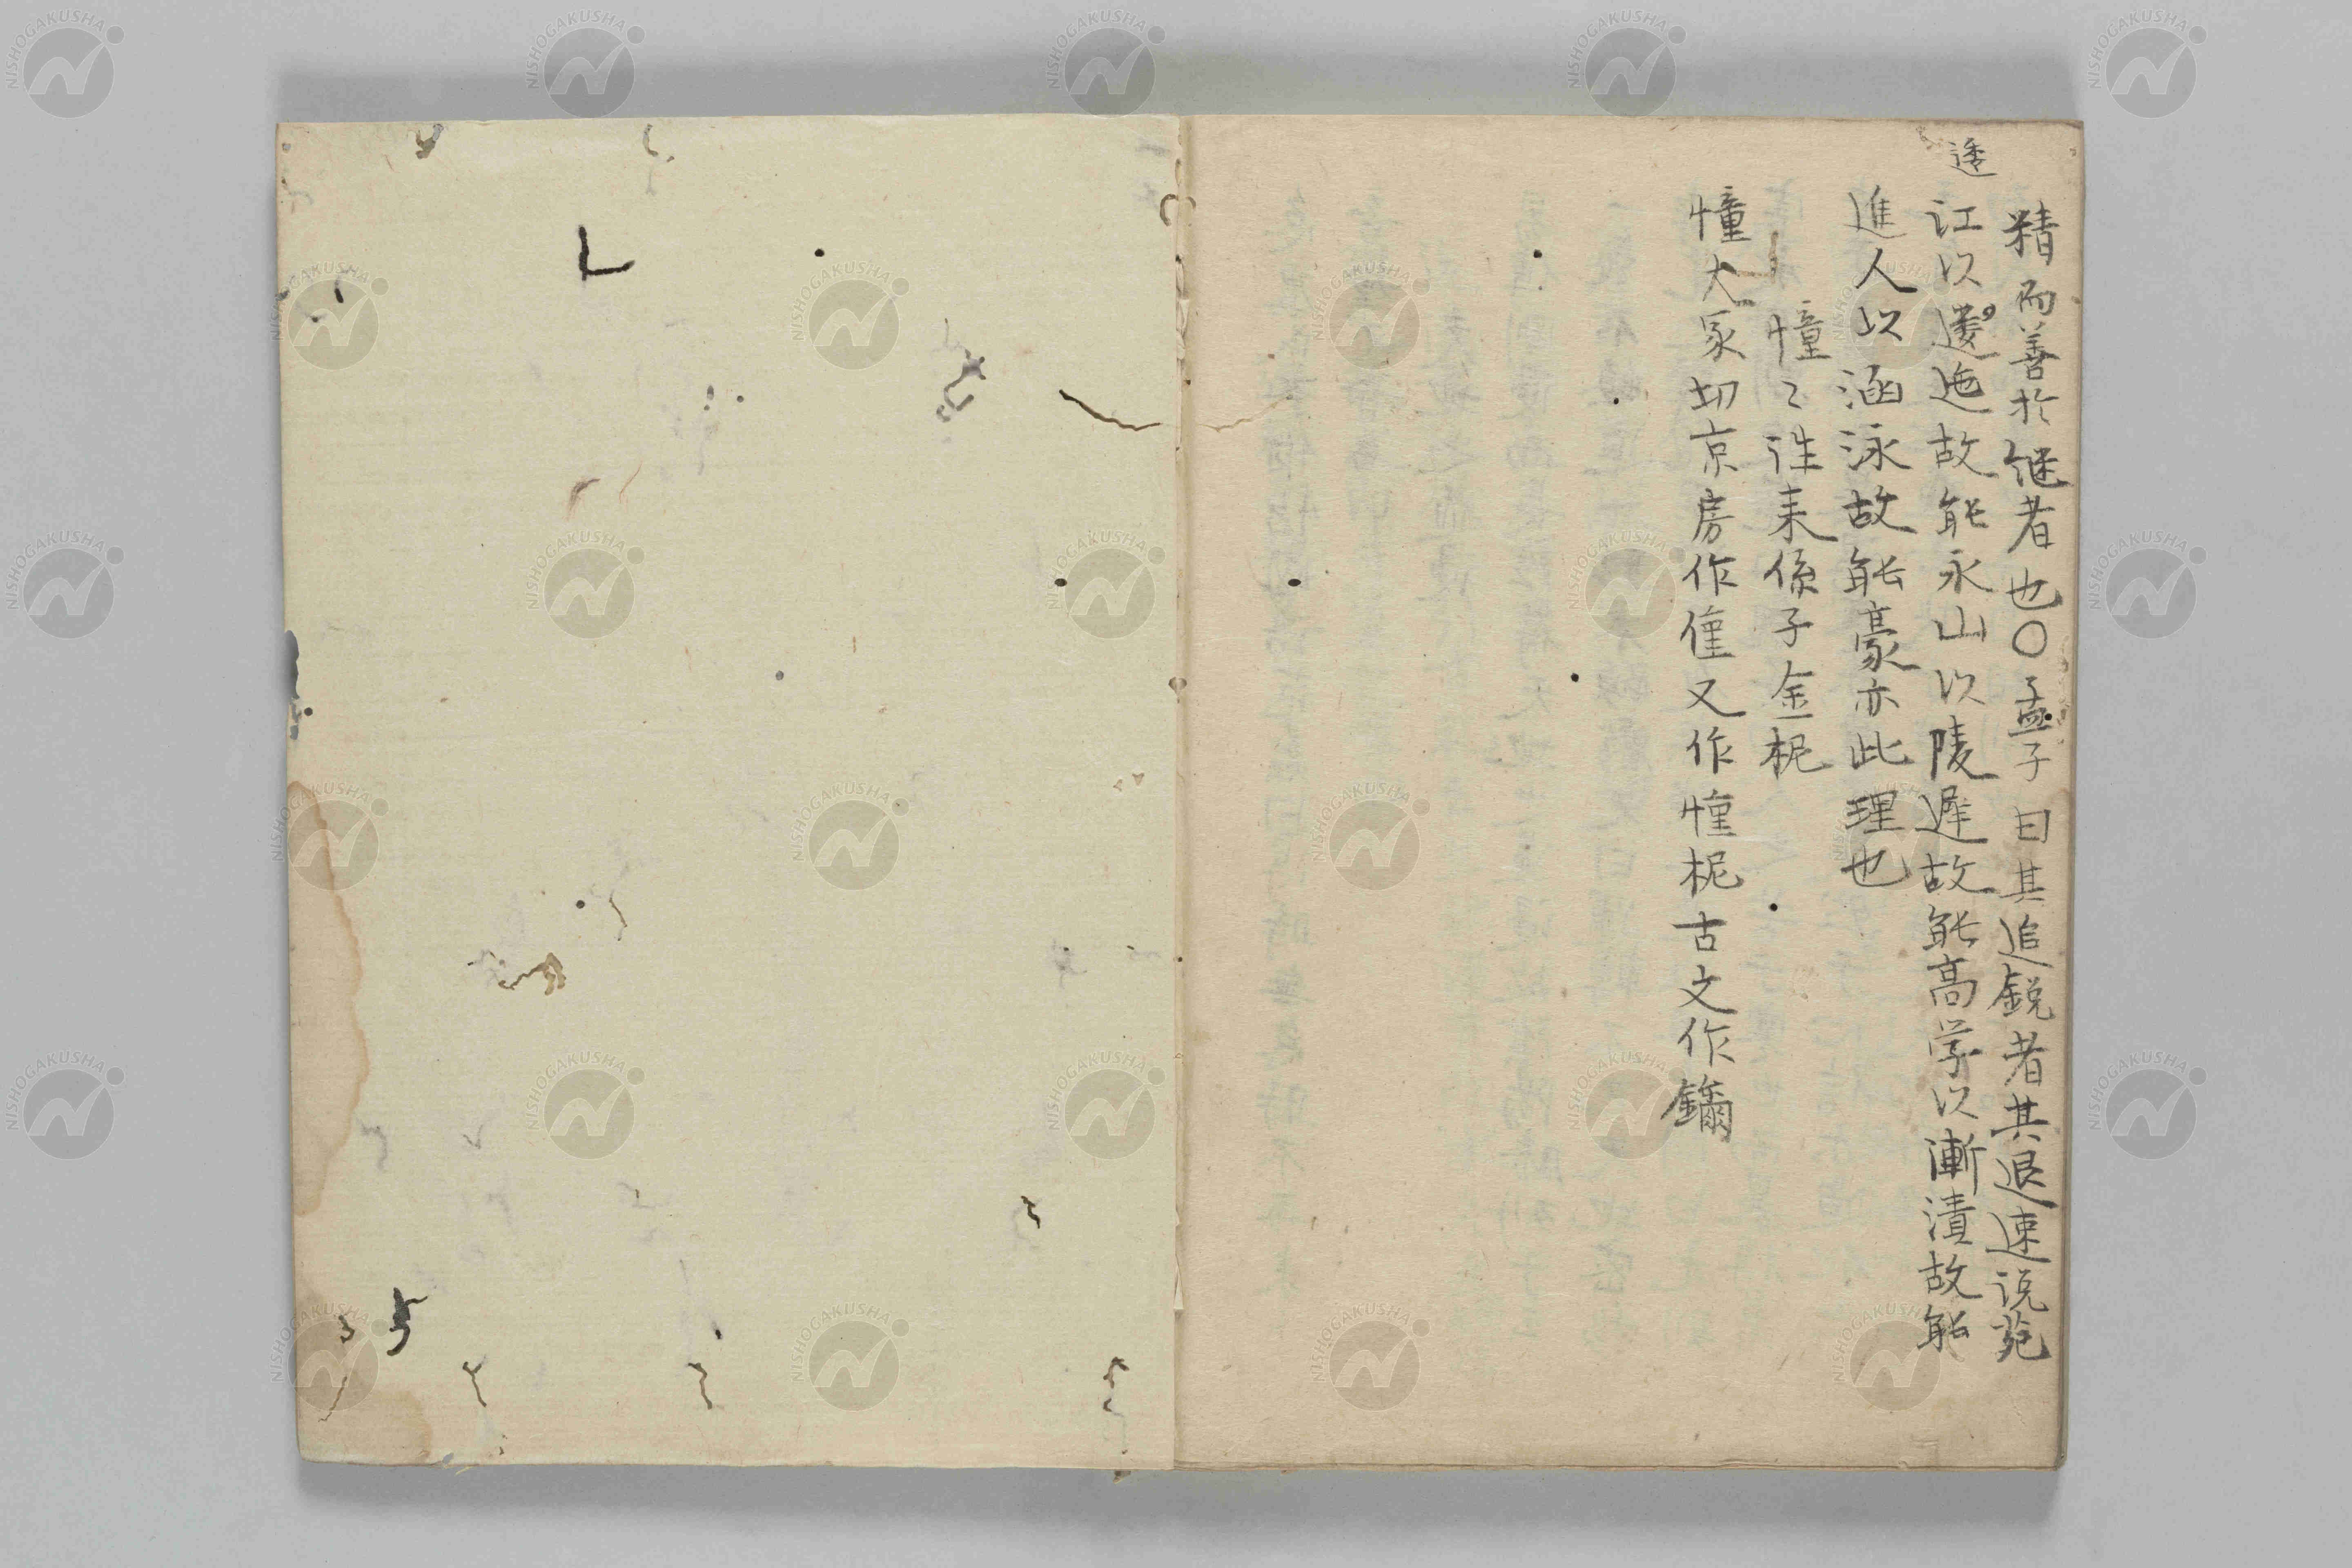 透
精而善於継者也〇孟子曰其追鋭者其退速说苑
江以逶迤故能永山以陵遅故能高学以漸漬故能
進人以涵泳故能豪亦此理也
憧〻徃来係子金柅
憧大冢切京房作僮又作憧柅古文作鑈
NISHOGAKUSHA